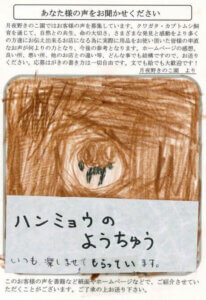 あなた様の声をお聞かせください
月夜野きのこ園ではお客様の声を募集しています。クワガタ・カブトムシ飼
育を通じて、自然との共生、命の大切さ、さまざまな発見と感動をより多く
の方達にお伝え出来るお店になる為に実際に用品をお使い頂いた皆様の率直
なお声が何よりの力となり、今後の参考となります。ホームページの感想、
良い所、悪い所、他のお店との違い等、どんな事でも結構ですので、お寄せ下
さい。応募はがきの書き方は一切自由です。文でも絵でも大歓迎です！
月夜野きのこ園 より
ハンミョウの
ようちゅう
いつも楽しませてもらっています。
このお客様の声を書籍など紙面やホームページなどで、ご紹介させてい
ただくことがございます。ご了承の上お送り下さい。